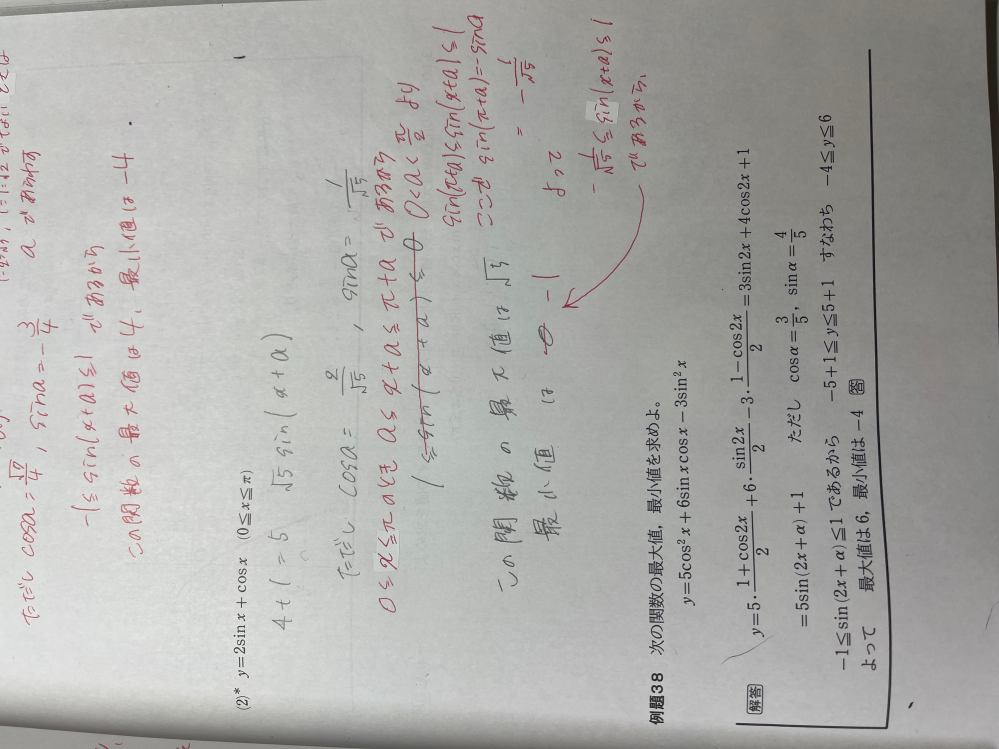 ただし cosa = √7/4 , sina = -3/4 aであらわす
-1≦sin(x+a)≦1 であるから
この関数の最大値は4、最小値は-4
(2)* y=2sinx+cosx (0≦x≦π)
4+1=5 √5 sin(x+a)
ただし cosa= 2/√5 , sina= 1/√5
0≦x≦πのとき a≦x+a≦π+a であるから
(≦sin(x+a)≦0 0<a<π/2 より
sin(π+a)≦sin(x+a)≦1
ここで sin(π+a)=-sina
= -1/√5
よって
-1/√5≦sin(x+a)≦1
であるから、
この関数の最大値は√5
最小値は -1
例題38 次の関数の最大値，最小値を求めよ。
y=5cos²x+6sinxcosx-3sin²x
解答 y=5・(1+cos2x)/2+6・sin2x/2-3・(1-cos2x)/2=3sin2x+4cos2x+1
=5sin(2x+α)+1 ただし cosα=3/5, sinα=4/5
-1≦sin(2x+α)≦1であるから -5+1≦y≦5+1 すなわち -4≦y≦6
よって 最大値は6，最小値は-4 答